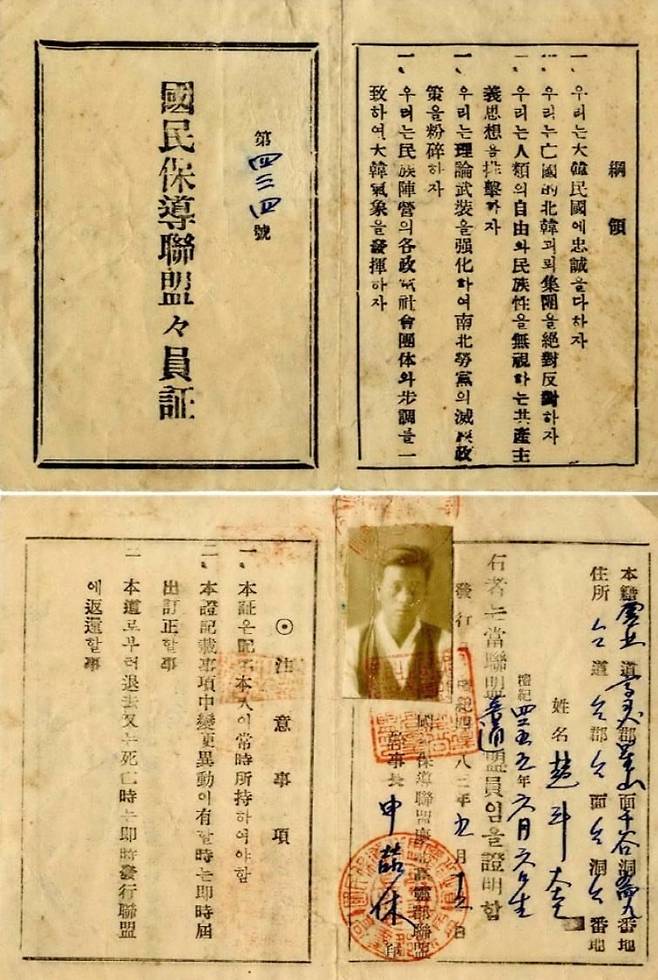 綱領
一、우리는大韓民國에忠誠을다하자
一、우리는亡國的北韓괴뢰集團을絶對反對하자
一、우리는人類의自由와民族性을無視하는共產主
義思想을排擊하자
一、우리는理論武装을强化하여南北勞黨의滅族政
策을粉碎하자
一、우리는民族陣營의各政 社會團体와步調를一
致하여大韓氣象을發揮하자
第四三四號
國民保導聯盟々員証
本籍 道 郡 面 洞 番地
住所 道 郡 面 洞 番地
姓名
檀紀四 年六月六日生
右者는當聯盟普通盟員임을證明함
發行 檀紀四 八三年五月 日
國民保導聯盟 郡聯盟
幹事長 申 休 印
⊙注意事項
一、本証은記名本人이常時所持하여야함
二、本證記載事項中變更異動이有할時는即時屆
出訂正할事
一 本道로부터退去又는死亡時는即時發行聯盟
에返還할事